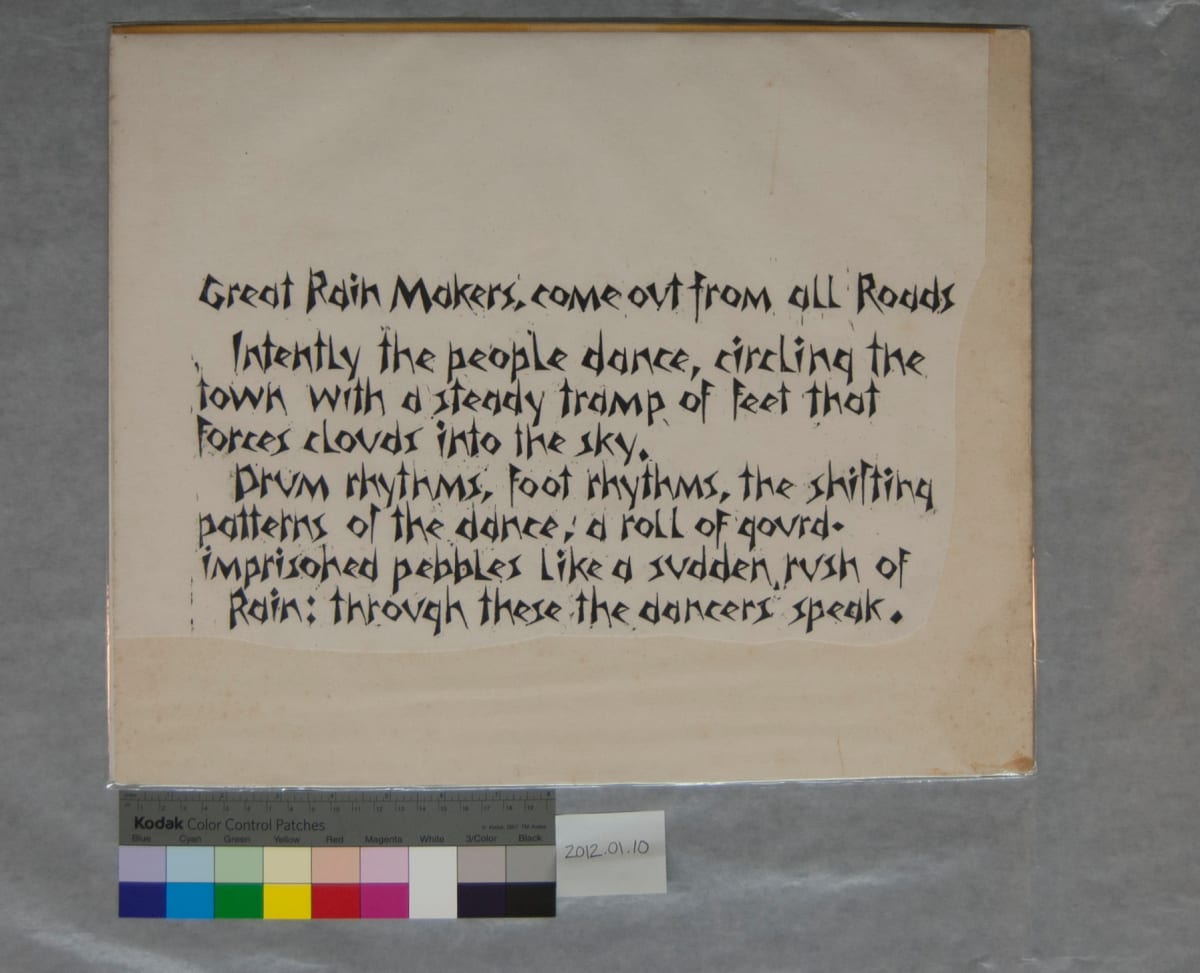 Great Rain Makers, come out from all Roads
Intently the people dance, circling the
town with a steady tramp of feet that
forces clouds into the sky.
Drum rhythms, foot rhythms, the shifting
patterns of the dance, a roll of gourd-
imprisoned pebbles like a sudden rush of
Rain: through these the dancers speak.
Kodak Color Control Patches
Blue Cyan Green Yellow Red Magenta White 3/Color Black
2012.01.10